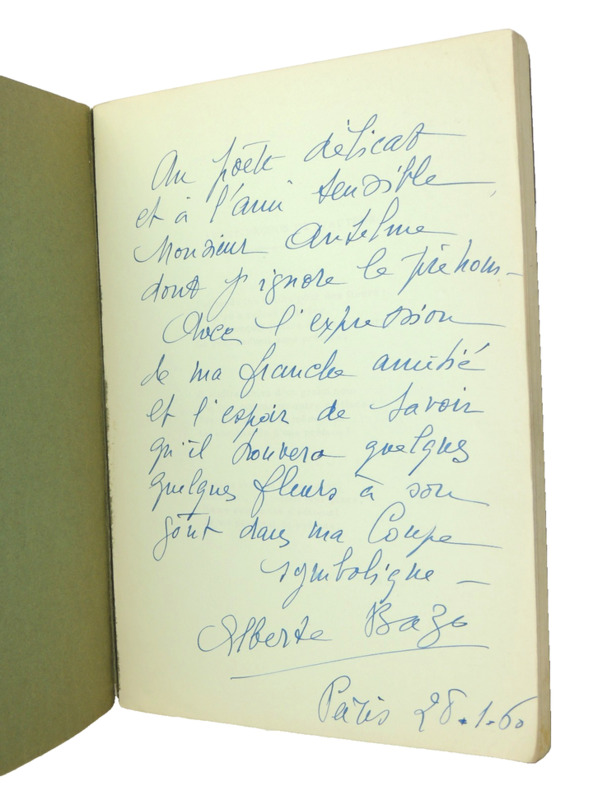 Au poète délicat
et à l'ami sensible,
Monsieur Anselme
dont j'ignore le prénom –
Avec l'expression
de ma franche amitié
et l'espoir de savoir
qu'il trouvera quelques
quelques fleurs à son
goût dans ma Coupe
symbolique –
Alberte Bazo
Paris 28.1.60